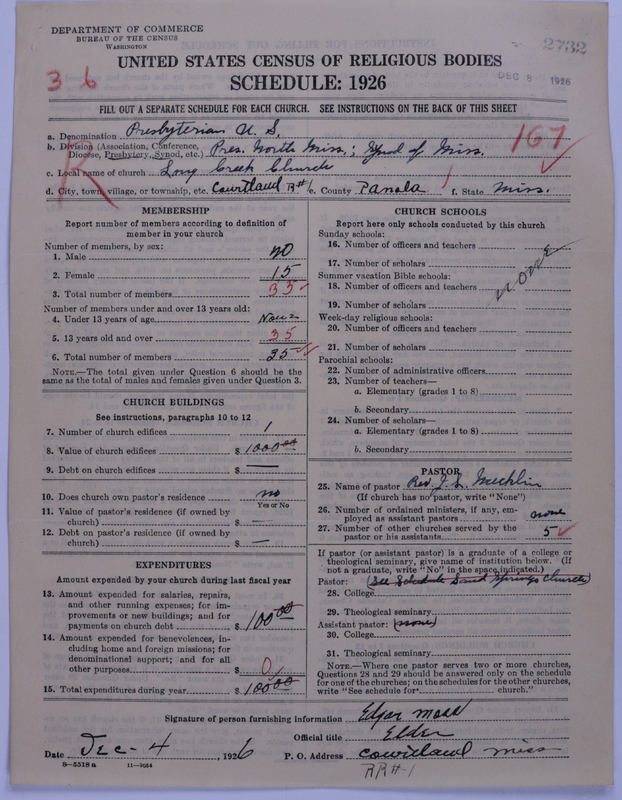 DEPARTMENT OF COMMERCE
BUREAU OF THE CENSUS
WASHINGTON
2732
UNITED STATES CENSUS OF RELIGIOUS BODIES
DEC 8 1926
36
SCHEDULE: 1926
FILL OUT A SEPARATE SCHEDULE FOR EACH CHURCH. SEE INSTRUCTIONS ON THE BACK OF THIS SHEET
a. Denomination Presbyterian U. S.
167
b. Division (Association, Conference, Diocese, Presbytery, Synod, etc.) Pres. North Miss.; Synod of Miss.
R
c. Local name of church Long Creek Church
d. City, town, village, or township, etc. Courtland R#1 e. County Panola f. State Miss.
MEMBERSHIP
Report number of members according to definition of
member in your church
Number of members, by sex:
1. Male 20
2. Female 15
3. Total number of members 35
Number of members under and over 13 years old:
4. Under 13 years of age None
5. 13 years old and over 35
6. Total number of members 35
NOTE.—The total given under Question 6 should be
same as the total of males and females given under Question 3.
CHURCH BUILDINGS
See instructions, paragraphs 10 to 12
7. Number of church edifices 1
8. Value of church edifices $ 1000.00
9. Debt on church edifices $ —
10. Does church own pastor's residence no
Yes or No
11. Value of pastor's residence (if owned by
church) $ —
12. Debt on pastor's residence (if owned by
church) $ —
EXPENDITURES
Amount expended by church during last fiscal year
13. Amount expended for salaries, repairs,
and other running expenses; for im-
provements or new buildings; and for
payments on church debt $ 100.00
14. Amount expended for benevolences, in-
cluding home and foreign missions; for
denominational support; and for all
other purposes $ 0
15. Total expenditures during year $ 100.00
CHURCH SCHOOLS
Report here only schools conducted by this church
Sunday schools:
16. Number of officers and teachers
none
17. Number of scholars
Summer vacation Bible schools:
18. Number of officers and teachers
19. Number of scholars
Week-day religious schools:
20. Number of officers and teachers
21. Number of scholars
Parochial schools:
22. Number of administrative officers
23. Number of teachers—
a. Elementary (grades 1 to 8)
b. Secondary
24. Number of scholars—
a. Elementary (grades 1 to 8)
b. Secondary
PASTOR
25. Name of pastor Rev. J. L. Mechlin
(If church has no pastor, write "None")
26. Number of ordained ministers, if any, em-
ployed as assistant pastors none
27. Number of other churches served by the
pastor or his assistants 5
If pastor (or assistant pastor) is a graduate of a college or
theological seminary, give name of institution below. (If
not a graduate, write "No" in the space indicated.)
Pastor: (See Schedule Sand Springs Church)
28. College
29. Theological seminary
Assistant pastor: (none)
30. College
31. Theological seminary
NOTE.—Where one pastor serves two or more churches,
Questions 28 and 29 should be answered only on the schedule
for one of the churches; on the schedules for the other churches,
write "See schedule for church."
Signature of person furnishing information Edgar
Official title Elder
Date Dec-4, 1926 P. O. Address Courtland Miss
RR#1
8-5318 a